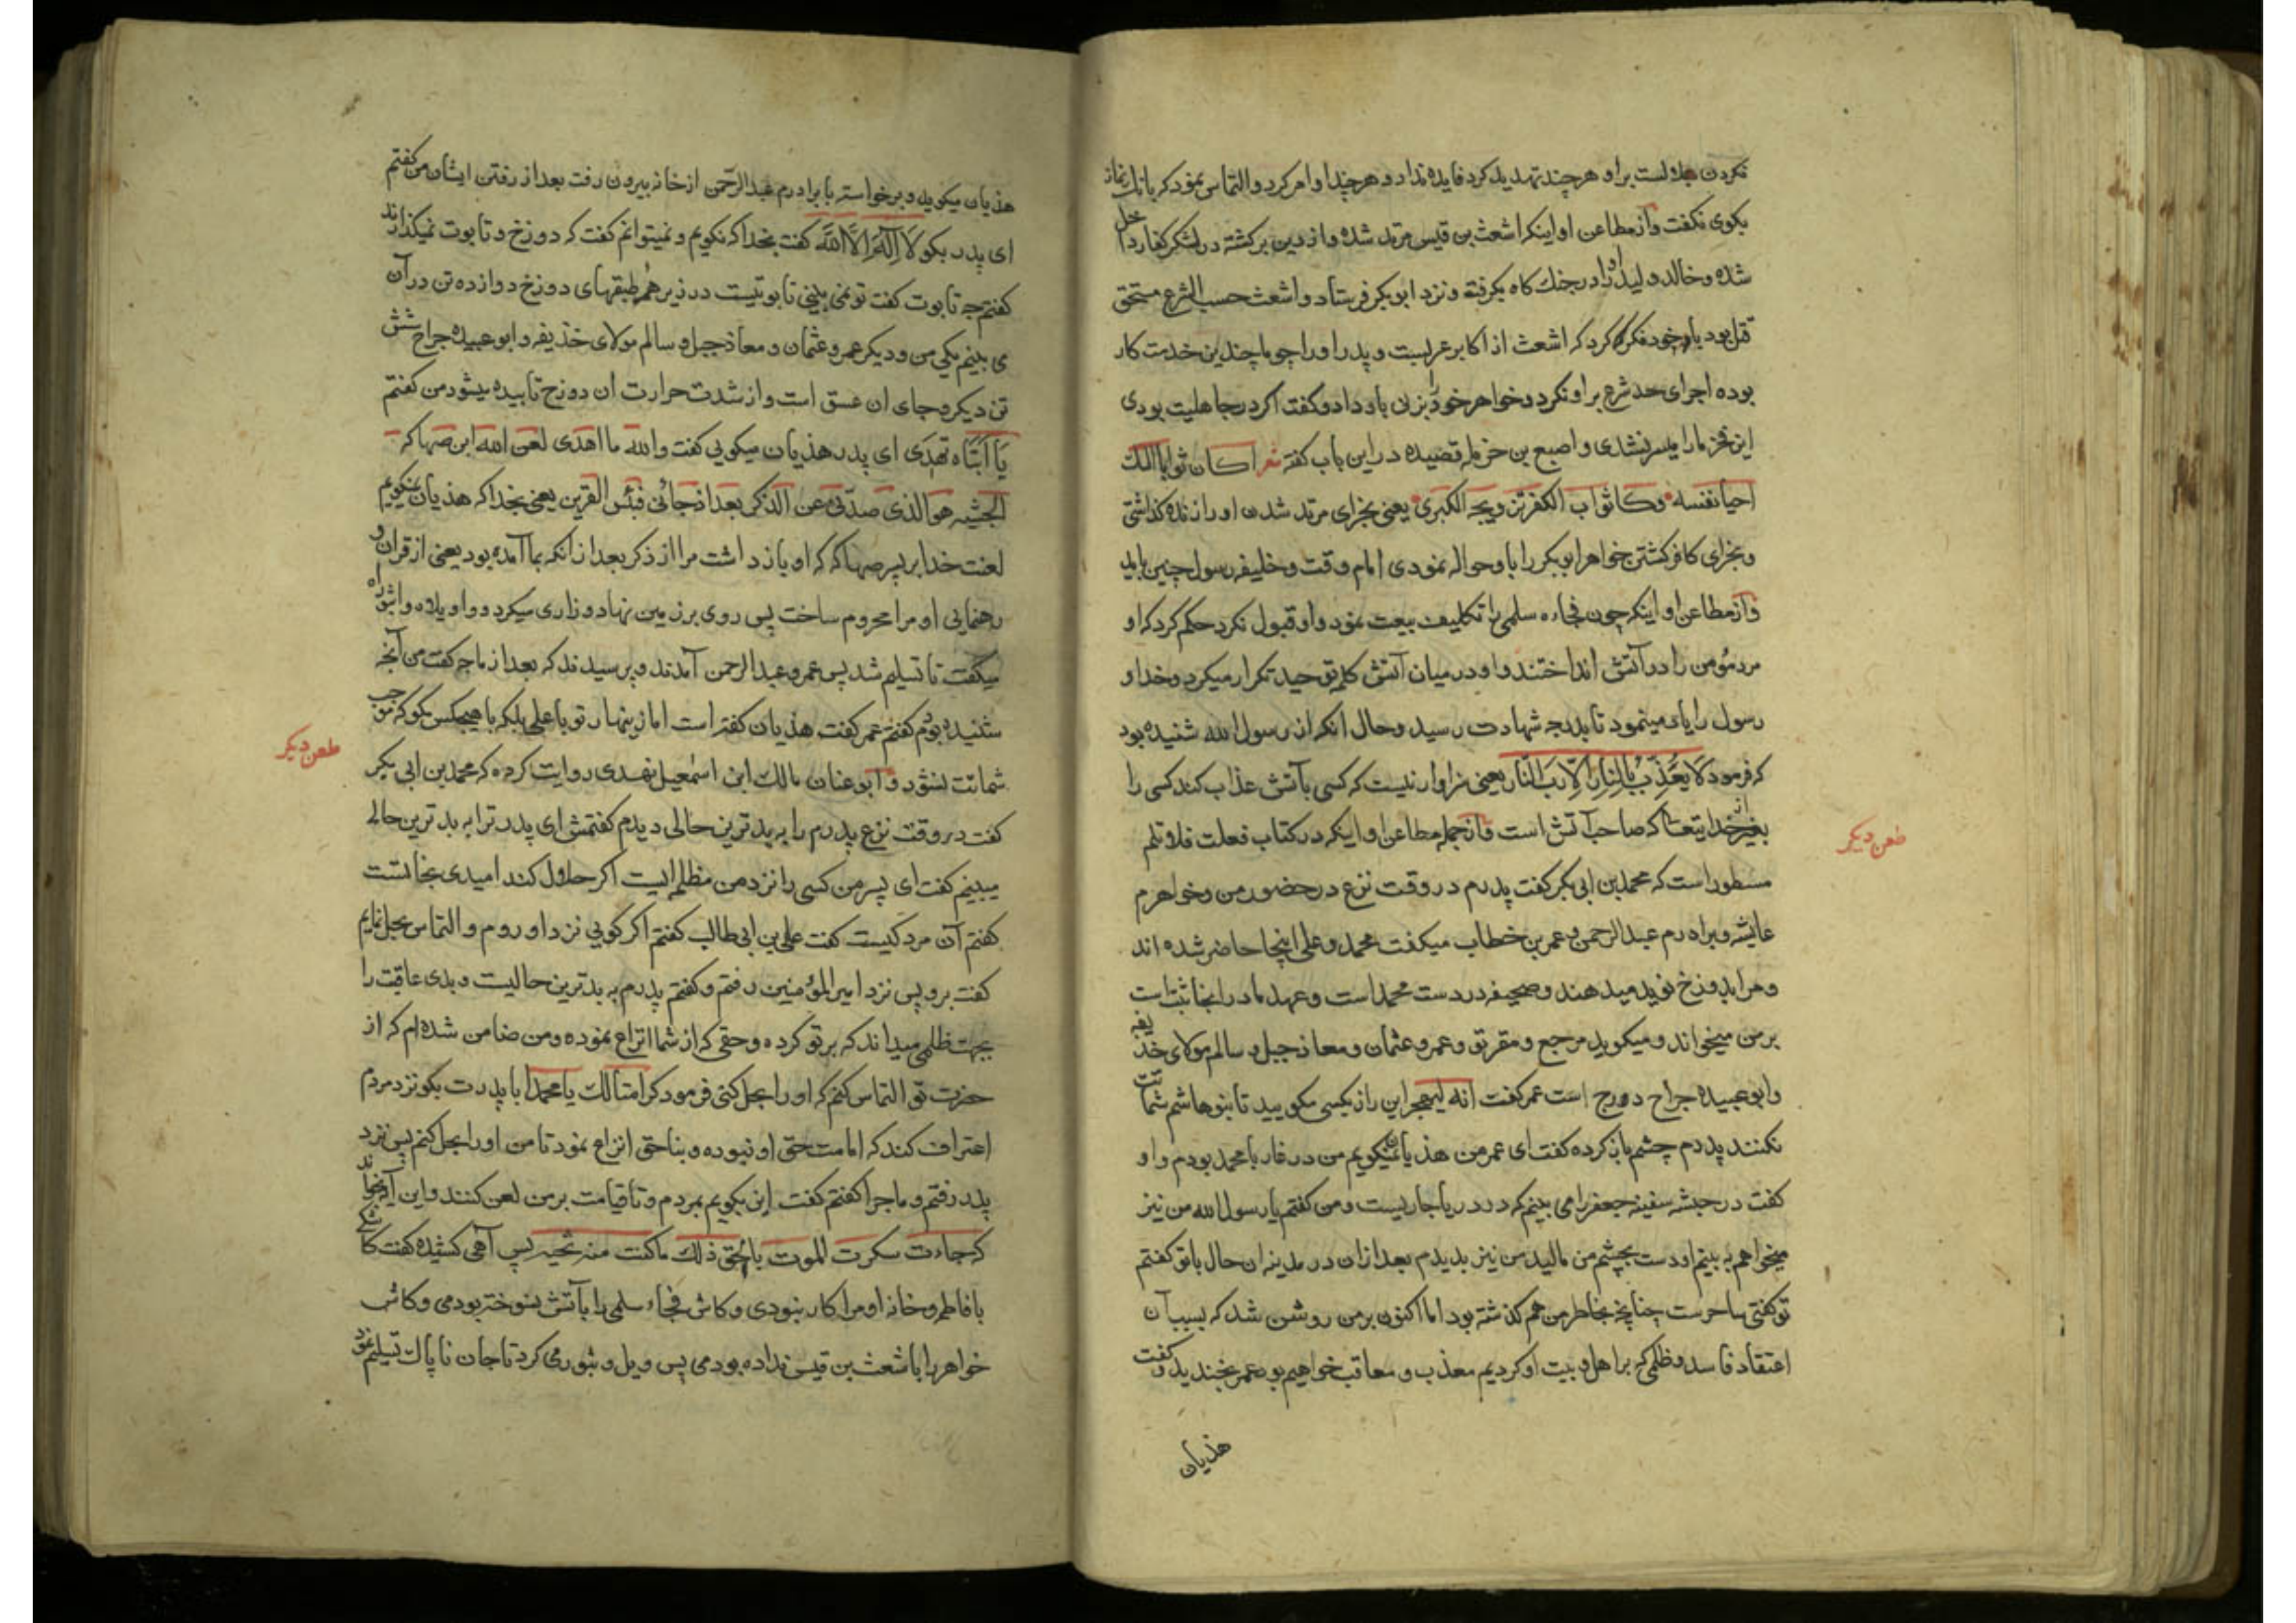 نکردن بلالست براو هرچند تهدید کرد فایده نداد و هرچند او امر کرد و التماس نمود که بانک نماز
بکوی نکفت واز مطاعن او اینکه اشعث بن قیس مرتد شده واز دین برکشته در لشکر کفار داخل
شده و خالد ولید اورا در جنک کاه بکرفته و نزد ابوبکر فرستاد و اشعث حسب الشرع مستحق
قتل بود با خود فکر کرد که اشعث از اکابر عربست و پدر او را چندین خدمت کار
بوده اجرای حد شرع براو نکرد و خواهر خود را بزنی باو داد و کفت اکر در جاهلیت بودی
این فخر مارا میسر نشدی و اصبغ بن حرمله قصیده در این باب کفته شعر اکان ثوابا لک
احیا نفسه وکا ثواب الکفر تزویجه الکبری یعنی بجزای مرتد شدن او را زنده کذاشتی
وبجزای کافر کشتن خواهر ابوبکر را باو حواله نمودی امام وقت و خلیفه رسول چنین باید
واز مطاعن او اینکه چون فجاءه سلمی را تکلیف بیعت نمود واو قبول نکرد حکم کرد که او
مرد مؤمن را در آتش انداختند واو در میان آتش کلمه توحید تکرار میکرد وخدا و
رسول را یاد مینمود تا بدرجه شهادت رسید وحال انکه از رسول الله شنیده بود
که فرمود لا یعذب بالنار الا رب النار یعنی سزاوار نیست که کسی بآتش عذاب کند کسی را
بغیر از خدایتعا که صاحب آتش است واز جمله مطاعن او اینکه در کتاب فعلت فلا تلم
مسطور است که محمد بن ابی بکر کفت پدرم در وقت نزع در حضور من وخواهرم
عایشه وبرادرم عبدالرحمن وعمر بن خطاب میکفت محمد وعلی اینجا حاضر شده اند
ومرا بدوزخ نوید میدهند وصحیفه در دست محمد است وعهد ما در انجا ثبت است
بر من میخواند ومیکوید مرجع ومقر تو وعمر وعثمان ومعاذ جبل وسالم مولای خذیفه
وابوعبیده جراح دوزخ است عمر کفت انه لیهجر این راز بکسی مکویید تا بنوهاشم شماتت
نکنند پدرم چشم باز کرده کفت ای عمر من هذیان نمیکویم من در غار با محمد بودم واو
کفت در حبشه سفینه جعفر را می بینم که در دریا جاریست ومن کفتم یا رسول الله من نیز
میخواهم به بینم او دست بچشم من مالید من نیز بدیدم بعد ازان در مدینه ان حال باتو کفتم
تو کفتی ساحرست چنانچه بخاطر من هم کذشته بود اما اکنون بر من روشن شد که بسبب آن
اعتقاد فاسد وظلمی که بر اهل بیت او کردیم معذب و معاقب خواهیم بود عمر بخندید وکفت
هذیان
طعن دیکر
هذیان میکوید وبرخواسته با برادرم عبدالرحمن از خانه بیرون رفت بعد از رفتن ایشان من کفتم
ای پدر بکو لا اله الا الله کفت بخدا که نکویم و نمیتوانم کفت که دوزخ و تابوت نمیکذارند
کفتم چه تابوت کفت تو نمی بینی تابوتیست در زیر همه طبقهای دوزخ دوازده تن در آن
می بینم یکی من ودیکر عمر وعثمان ومعاذ جبل وسالم مولای خذیفه وابوعبیده جراح شش
تن دیکر وجای ان عسق است واز شدت حرارت ان دوزخ تابیده میشود من کفتم
یا ابتاه تهدی ای پدر هذیان میکویی کفت والله ما اهدی لعن الله ابن صهاکه
الحبشیه هو الذی صدنی عن الذکر بعد اذ جائنی فبئس القرین یعنی بخدا که هذیان نمیکویم
لعنت خدا بر پسر صهاکه که او باز داشت مرا از ذکر بعد از آنکه بما آمده بود یعنی از قران و
رهنمایی او مرا محروم ساخت پس روی بر زمین نهاد وزاری میکرد وواویلاه واثبوراه
میکفت تا تسلیم شد پس عمر وعبدالرحمن آمدند وپرسیدند که بعد از ما چه کفت من آنچه
شنیده بودم کفتم عمر کفت هذیان کفته است اما زینهار تو با علی بلکه با هیچکس مکو که موجب
شماتت نشود وابو عنان مالک ابن اسمعیل نهدی روایت کرده که محمد بن ابی بکر
کفت در وقت نزع پدرم را به بدترین حالی دیدم کفتمش ای پدر ترا به بدترین حالی
میبینم کفت ای پسر من کسی را نزد من مظلمه ایست اکر حلول کند امیدی بنجاتست
کفتم آن مرد کیست کفت علی بن ابی طالب کفتم اکر کویی نزد او روم و التماس بحل نمایم
کفت برو پس نزد امیرالمؤمنین رفتم وکفتم پدرم به بدترین حالیست وبدی عاقبت را
بجهت ظلمی میداند که برتو کرده وحقی که از شما انتزاع نموده ومن ضامن شده ام که از
حضرت تو التماس کنم که او را بحل کنی فرمود کرامتا لک یا محمد با پدرت بکو نزد مردم
اعتراف کند که امامت حق او نبوده وبناحق انزاع نمود تا من اورا بحل کنم پس نزد
پدر رفتم و ماجرا کفتم کفت این بکویم بمردم وتا قیامت بر من لعن کنند واین آیه بخواند
که جاءت سکرت الموت بالحق ذلک ما کنت منه تحید پس آهی کشیده کفت کاشکی
با فاطمه وخانه او مرا کار نبودی وکاش فجاء سلمی را بآتش نسوخته بودمی وکاش
خواهر را باشعث بن قیس نداده بودمی پس ویل وثبور می کرد تا جان ناپاک تسلیم نمود
طعن دیکر